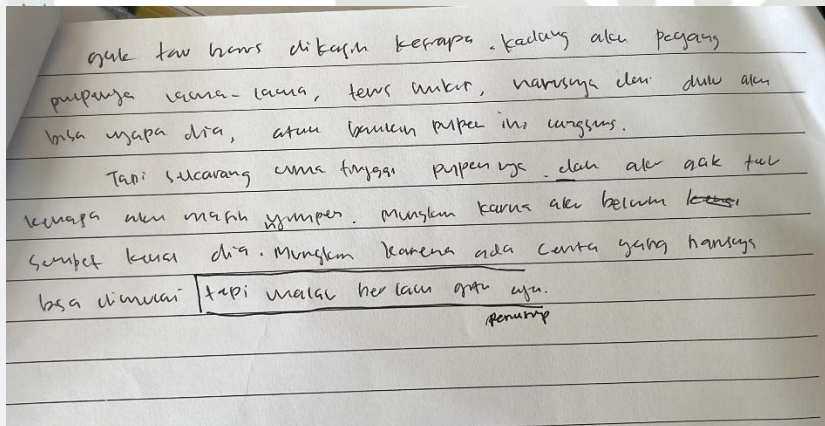 gak tau harus dikasih kesiapa. kadang aku pegang
pulpennya lama-lama, terus mikir, harusnya dari dulu aku
bisa nyapa dia, atau balikin pulpen ini langsung.
Tapi sekarang cuma tinggal pulpennya. dan aku gak tau
kenapa aku masih nyimpen. Mungkin karna aku belum
sempet kenal dia. Mungkin karena ada cerita yang harusnya
bisa dimulai tapi malah berlalu gitu aja.
penutup